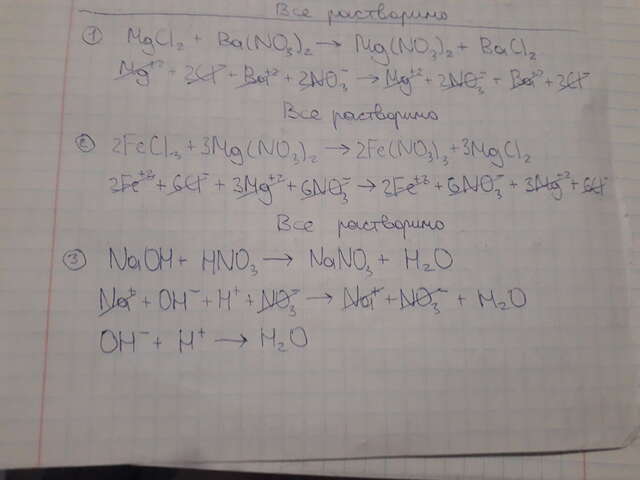 Все растворимо
① MgCl₂ + Ba(NO₃)₂ → Mg(NO₃)₂ + BaCl₂
Mg⁺² + 2Cl⁻ + Ba⁺² + 2NO₃⁻ → Mg⁺² + 2NO₃⁻ + Ba⁺² + 2Cl⁻
Все растворимо
② 2FeCl₃ + 3Mg(NO₃)₂ → 2Fe(NO₃)₃ + 3MgCl₂
2Fe⁺³ + 6Cl⁻ + 3Mg⁺² + 6NO₃⁻ → 2Fe⁺³ + 6NO₃⁻ + 3Mg⁺² + 6Cl⁻
Все растворимо
③ NaOH + HNO₃ → NaNO₃ + H₂O
Na⁺ + OH⁻ + H⁺ + NO₃⁻ → Na⁺ + NO₃⁻ + H₂O
OH⁻ + H⁺ → H₂O